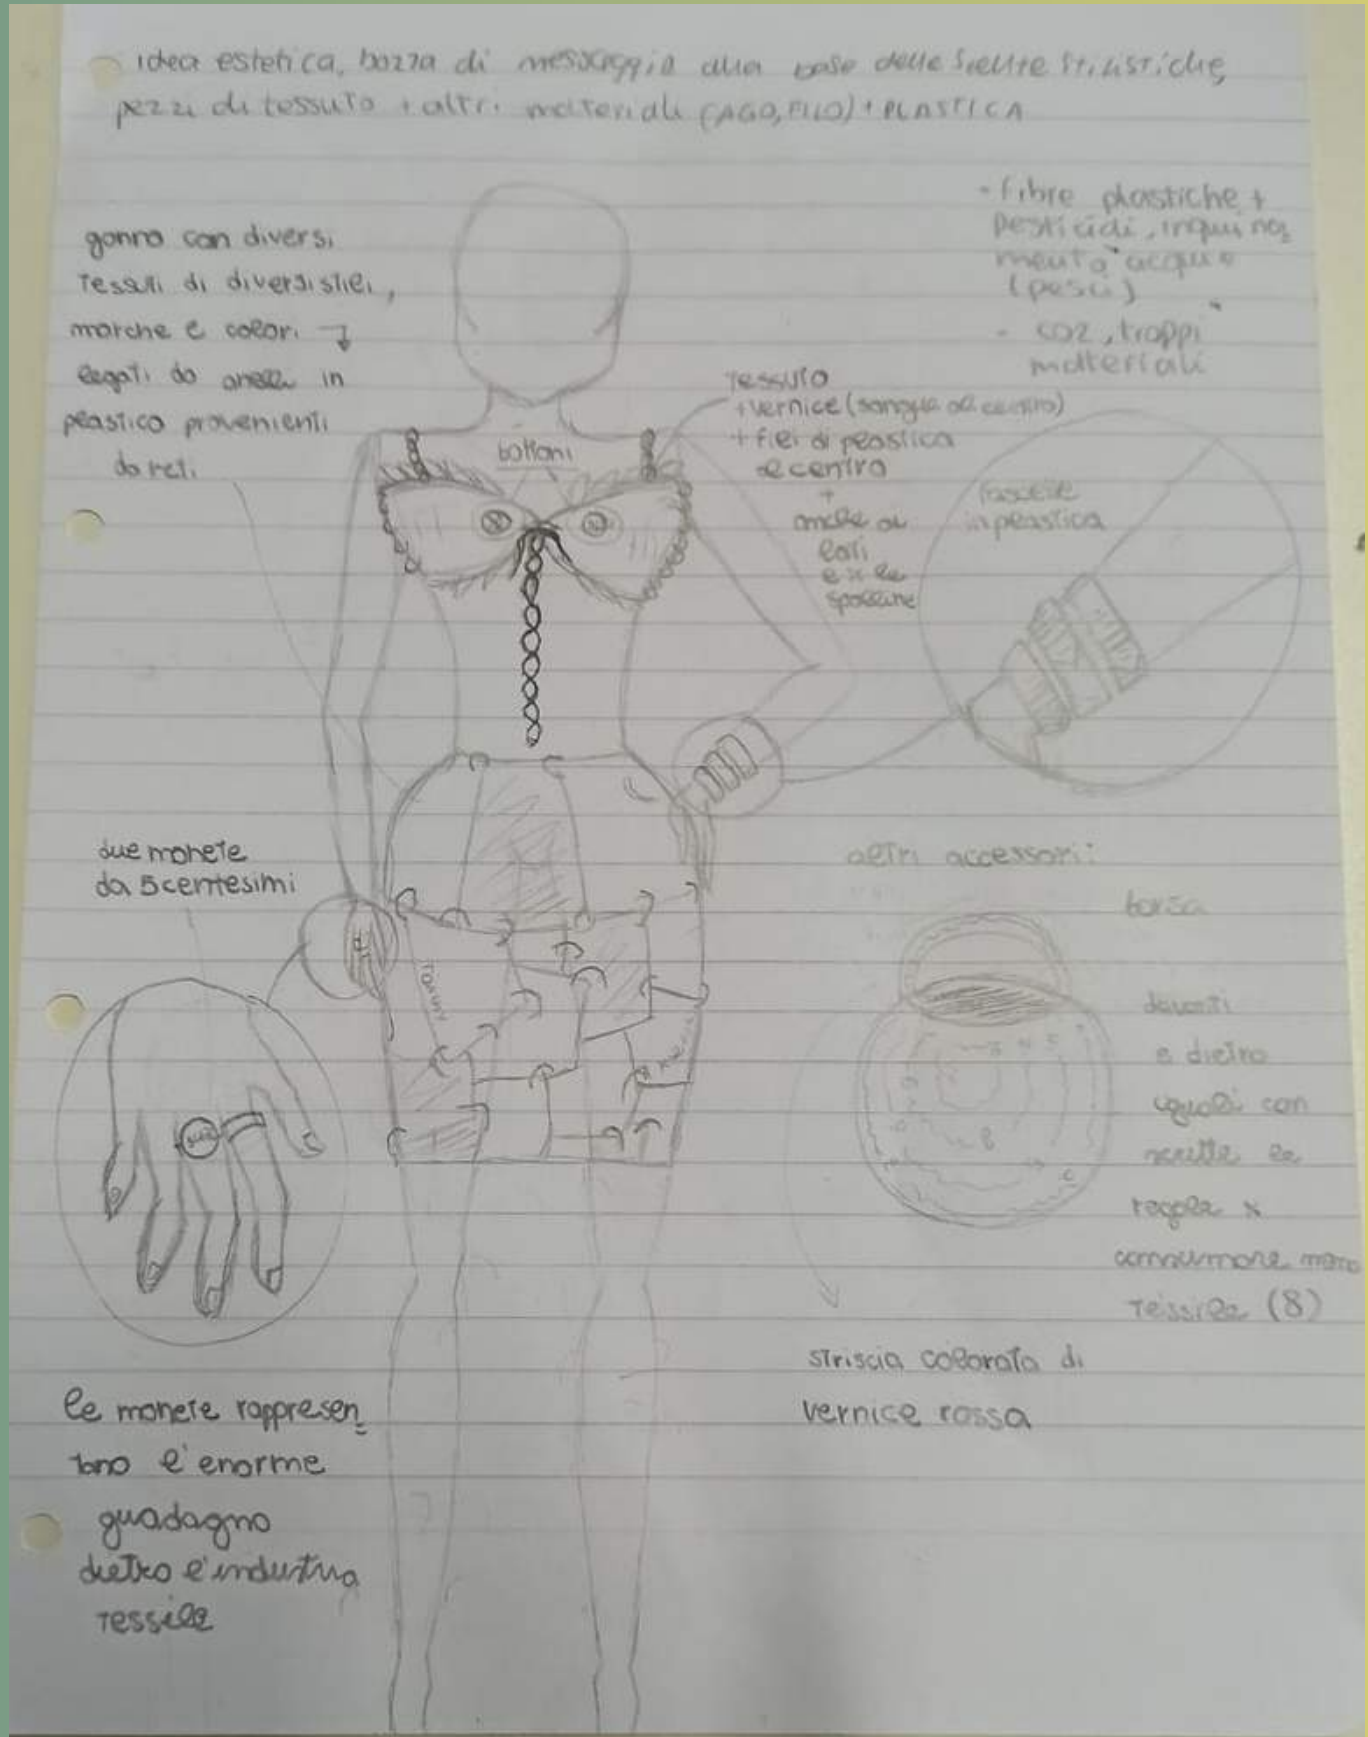 idea estetica, bozza di messaggio alla base delle scelte stilistiche,
pezzi di tessuto + altri materiali (AGO, FILO) + PLASTICA
- fibre plastiche +
pesticidi, inquina=
mento acque
(pesci)
- CO2, troppi
materiali
gonna con diversi
tessuti di diversi stili,
marche e colori
legati da anelli in
plastica provenienti
da reti
bottoni
tessuto
+ vernice (sangue al centro)
+ fili di plastica
al centro
+
anche ai
lati
e x le
spalline
fascette
in plastica
due monete
da 5 centesimi
TOMMY
altri accessori:
borsa
davanti
e dietro
uguali con
scritte le
regole x
consumare meno
tessile (8)
striscia colorata di
vernice rossa
le monete rappresen=
tano l'enorme
guadagno
dietro l'industria
tessile